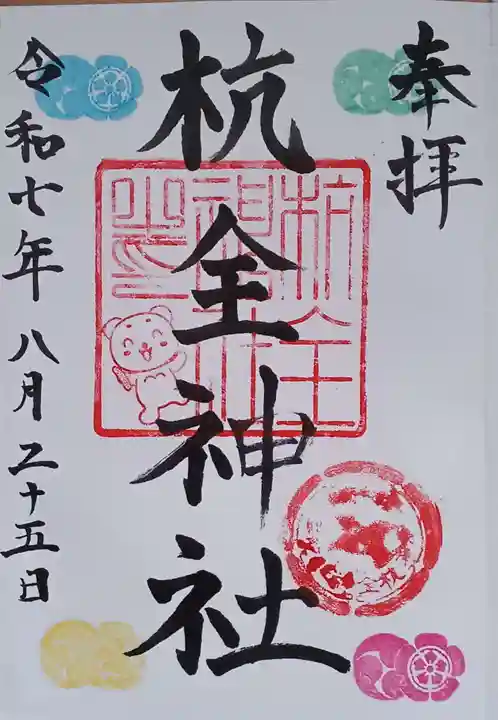 奉拝
杭全神社
令和七年八月二十五日
杭全
神社
之印